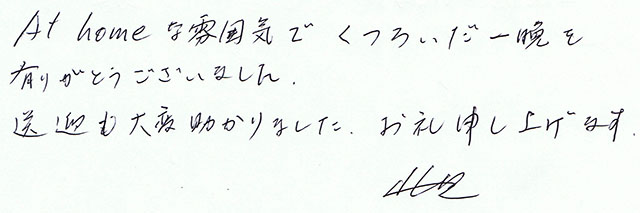 At homeな雰囲気で くつろいだ一晩を
有りがとうございました.
送迎も大変助かりました. お礼申し上げます.